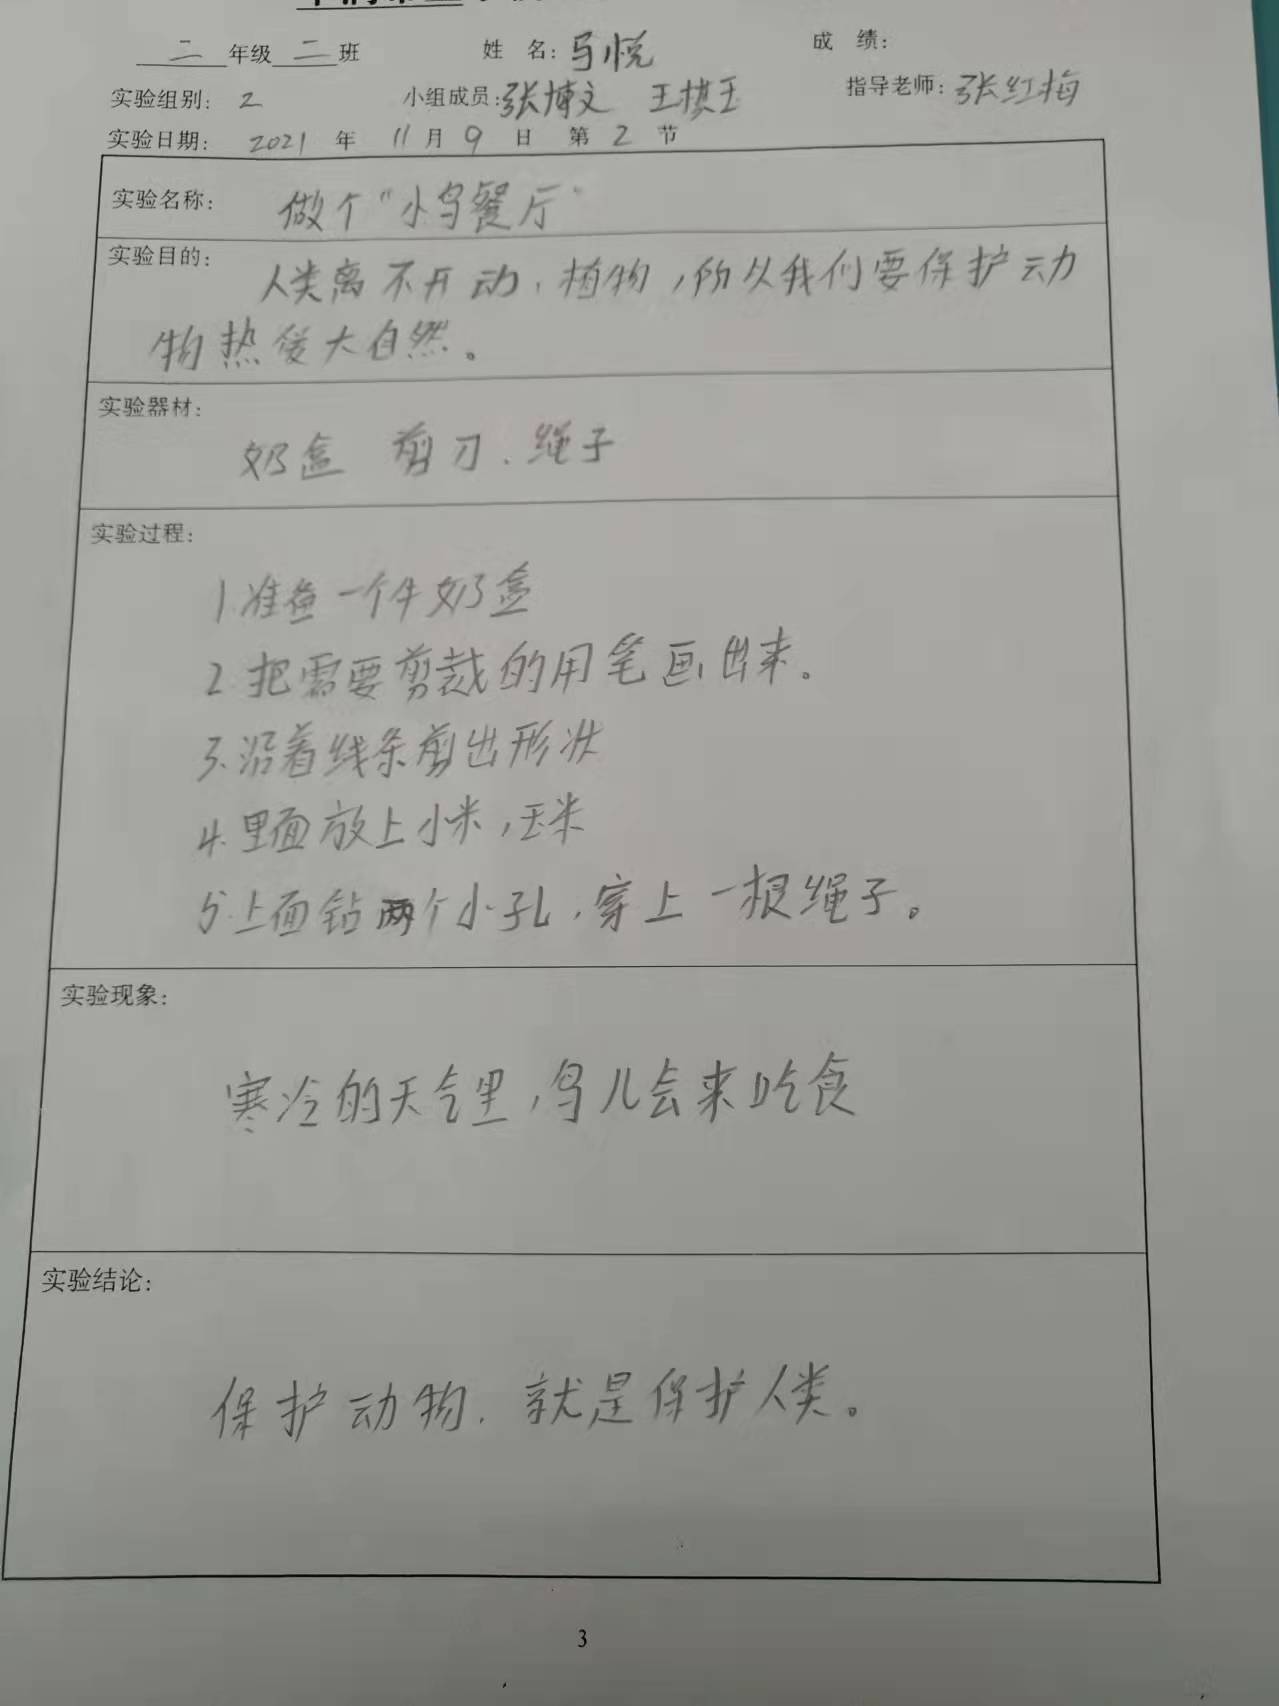 二年级二班 姓 名：马悦 成 绩：
实验组别：2 小组成员：张博文 王棋玉 指导老师：张红梅
实验日期：2021 年 11 月 9 日 第 2 节
实验名称：做个“小鸟餐厅”
实验目的：人类离不开动、植物，所以我们要保护动
物热爱大自然。
实验器材：
奶盒 剪刀、绳子
实验过程：
1.准备一个牛奶盒
2.把需要剪裁的用笔画出来。
3.沿着线条剪出形状
4.里面放上小米，玉米
5.上面钻两个小孔，穿上一根绳子。
实验现象：
寒冷的天气里，鸟儿会来吃食
实验结论：
保护动物、就是保护人类。
3